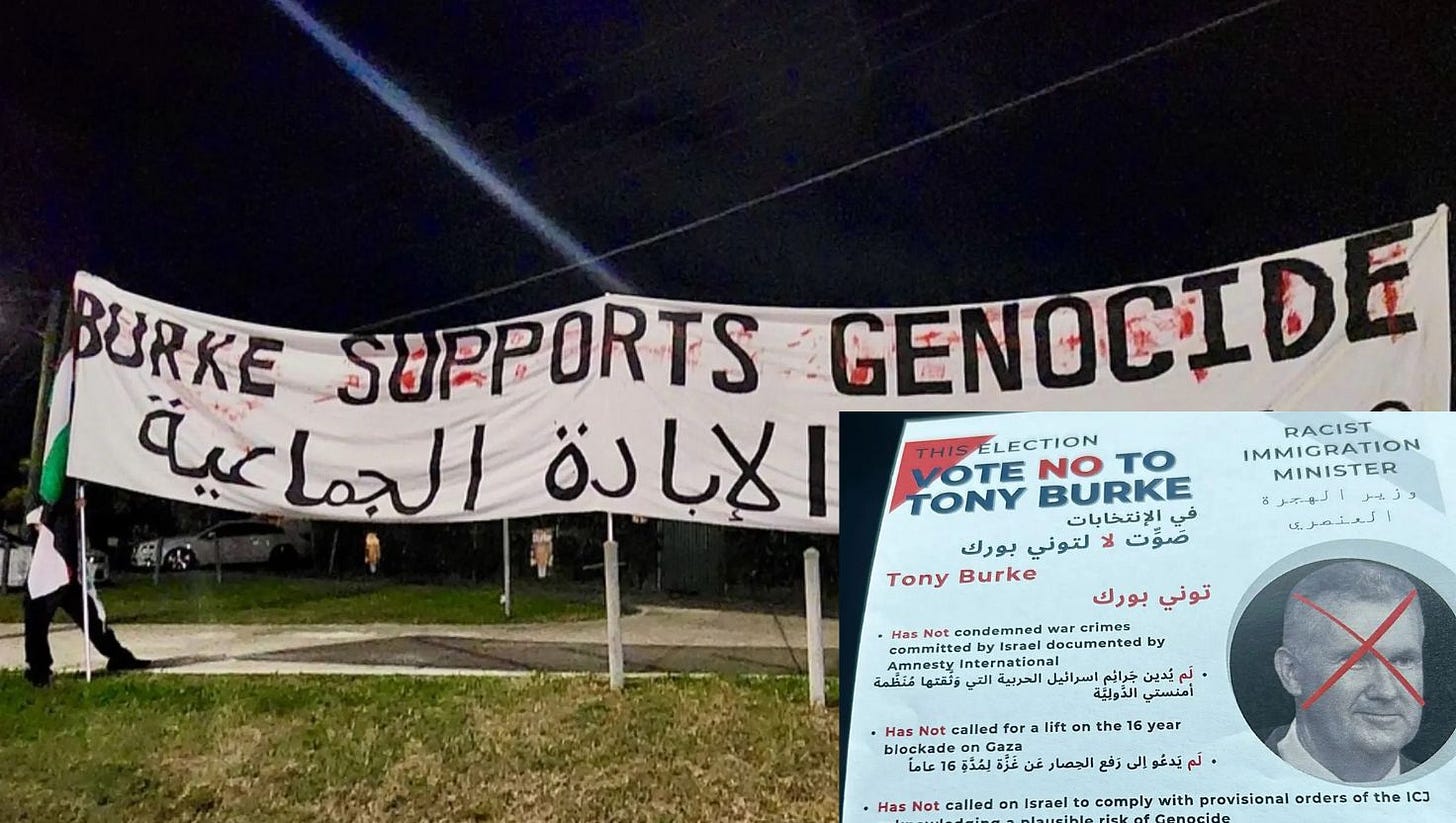 BURKE SUPPORTS GENOCIDE
الإبادة الجماعية
THIS ELECTION
VOTE NO TO
TONY BURKE
في الإنتخابات
صَوِّت لا لتوني بورك
Tony Burke
توني بورك
• Has Not condemned war crimes
committed by Israel documented by
Amnesty International
• لَم يُدين جَرائِم اسرائيل الحربية التي وَثَّقتها مُنَظَّمة
أمنستي الدَّولِيَّة
• Has Not called for a lift on the 16 year
blockade on Gaza
• لَم يَدعُو اِلى رَفع الحِصار عَن غَزَّة لِمُدَّةِ 16 عاماً
• Has Not called on Israel to comply with provisional orders of the ICJ
a plausible risk of Genocide
RACIST
IMMIGRATION
MINISTER
وزير الهجرة
العنصري